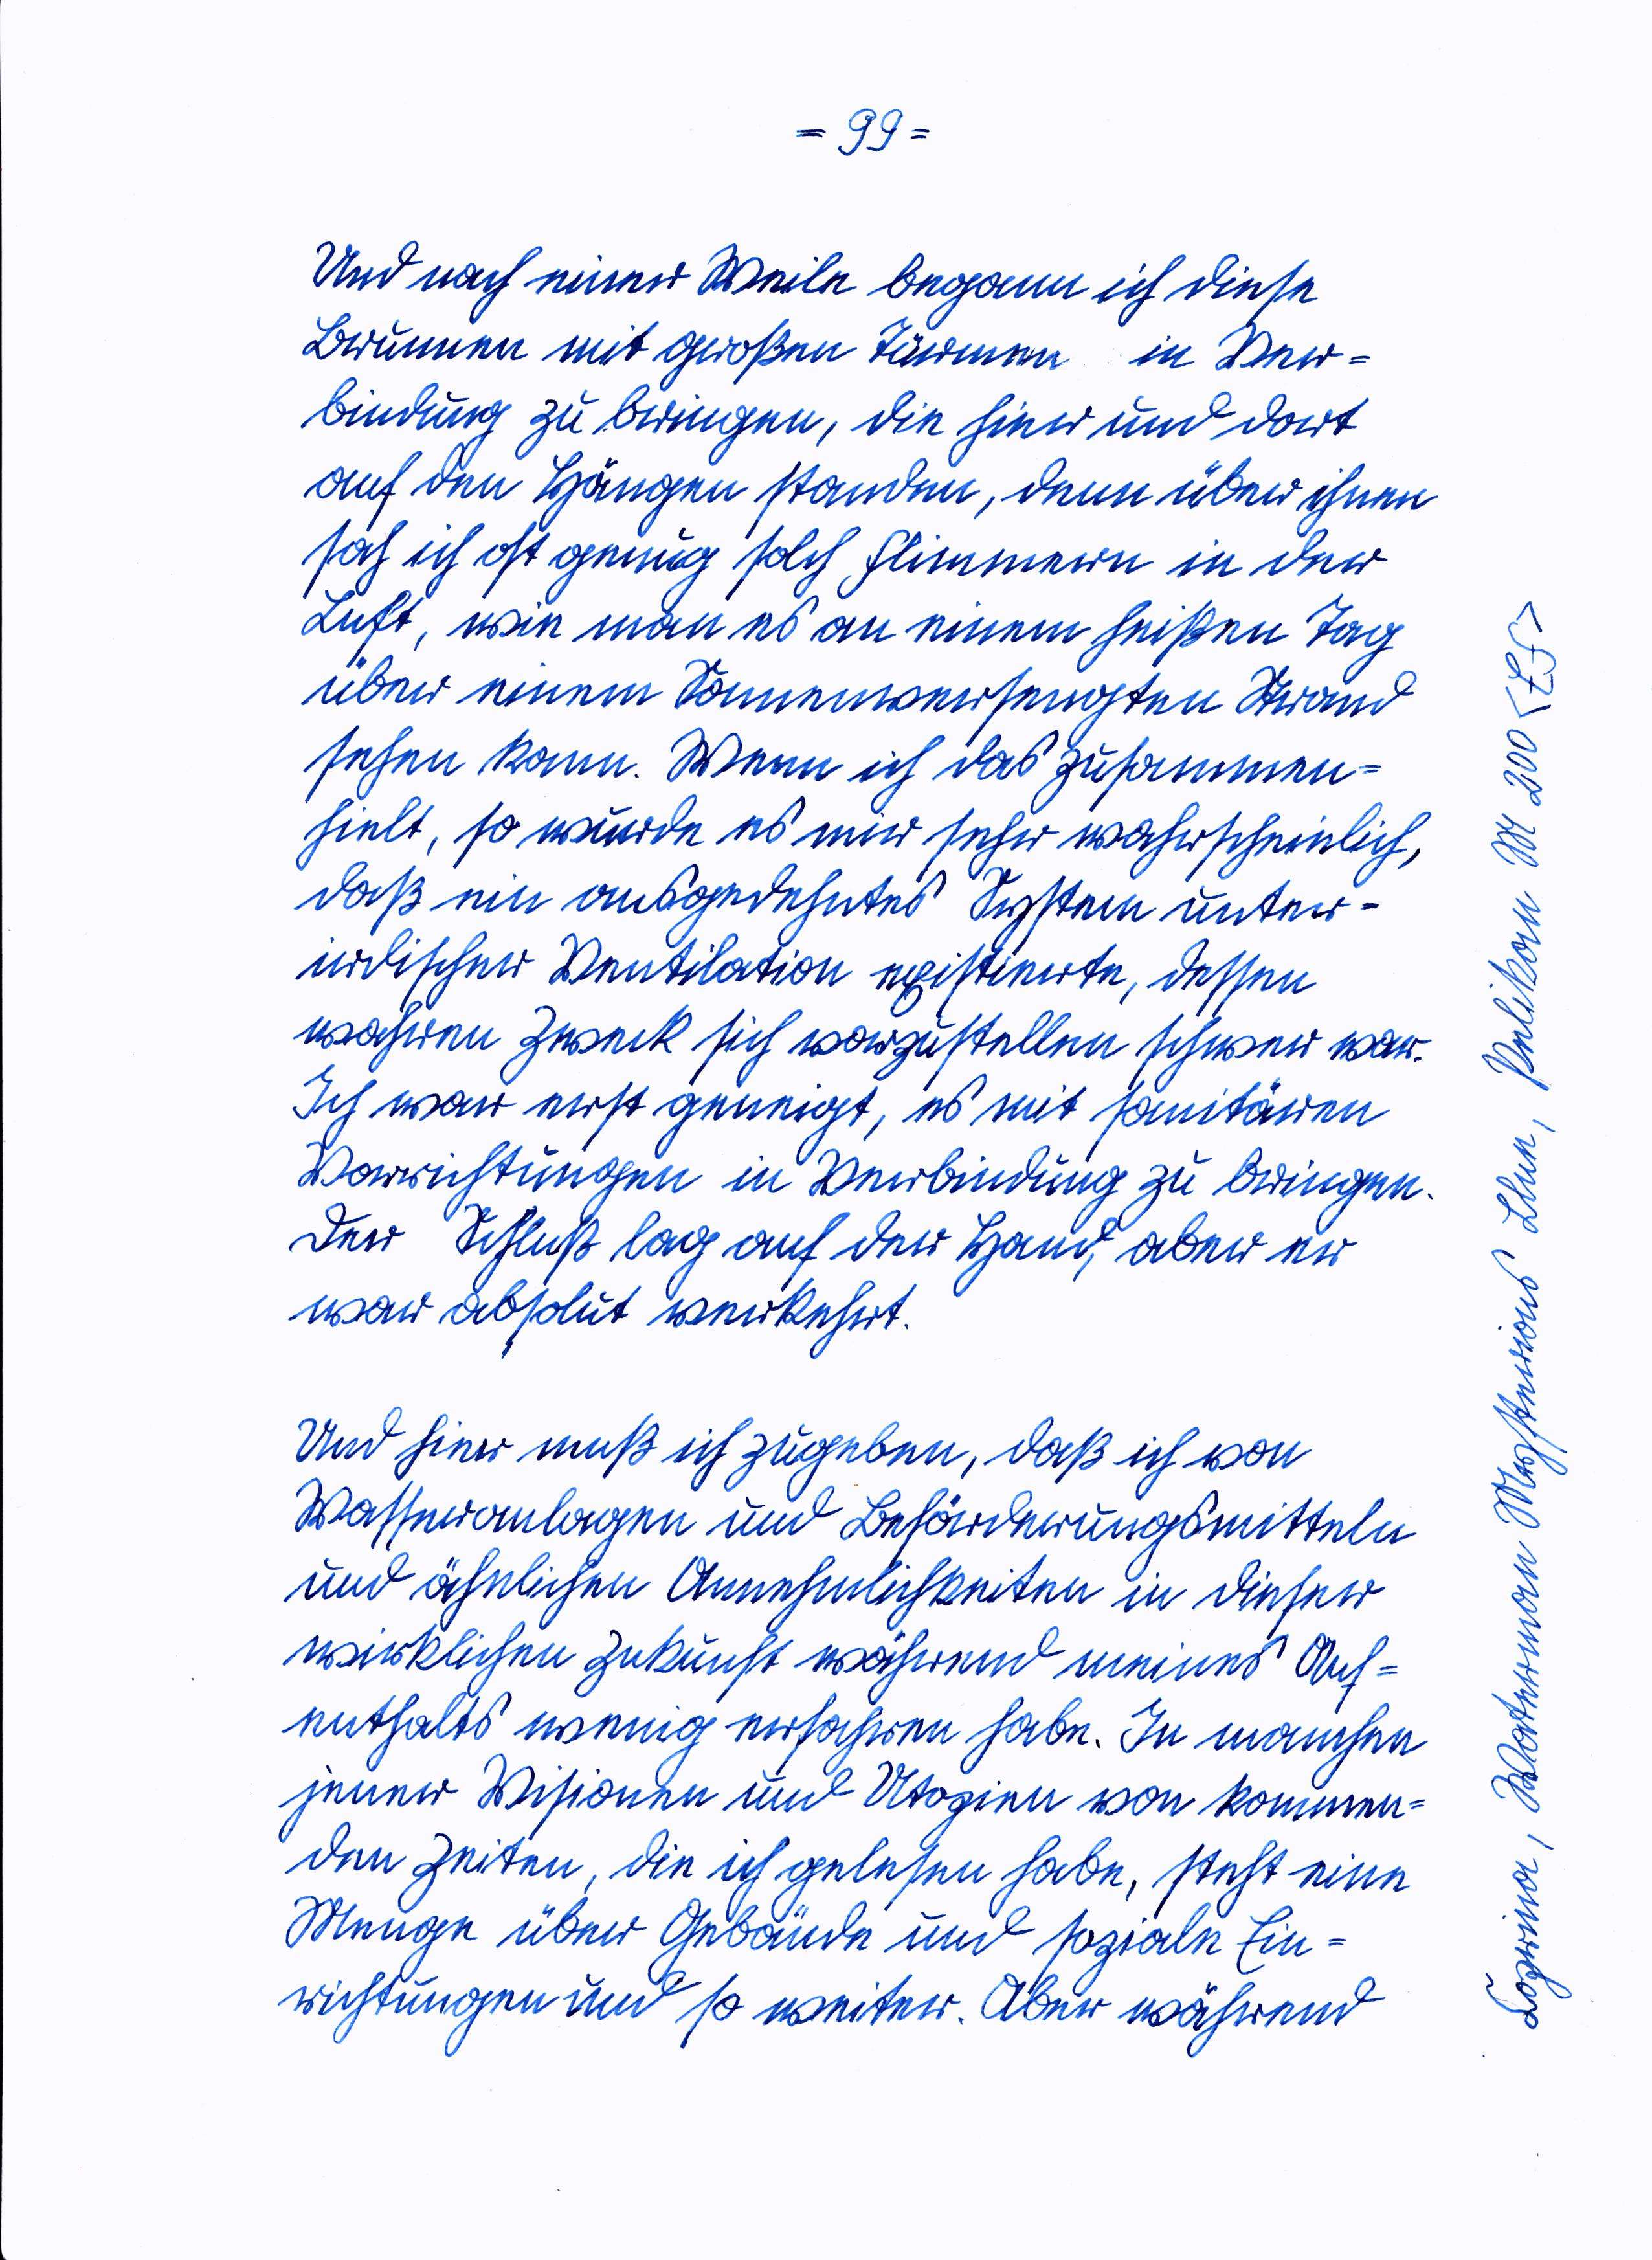 = 99 =
Und nach einer Weile begann ich diese
Brunnen mit großen Türmen in Ver=
bindung zu bringen, die hier und dort
auf den Hängen standen, denn über ihnen
sah ich oft genug solch Flimmern in der
Luft, wie man es an einem heißen Tag
über einem Sonnenversengten Strand
sehen kann. Wenn ich das zusammen=
hielt, so wurde es mir sehr wahrscheinlich,
daß ein ausgedehntes System unter=
irdischer Ventilation existierte, dessen
wahren Zweck sich vorzustellen schwer war.
Ich war erst geneigt, es mit sanitären
Vorrichtungen in Verbindung zu bringen.
Der Schluß lag auf der Hand, aber er
war absolut verkehrt.
Und hier muß ich zugeben, daß ich von
Wasseranlagen und Beförderungsmitteln
und ähnlichen Annehmlichkeiten in dieser
wirklichen Zukunft während meines Auf=
enthalts wenig erfahren habe. In manchen
jener Visionen und Utopien von kommen=
den Zeiten, die ich gelesen habe, steht eine
Menge über Gebäude und soziale Ein=
richtungen und so weiter. Aber während
Logrima, Waterman Mysterious Blue, Pelikan M 200 <EF>